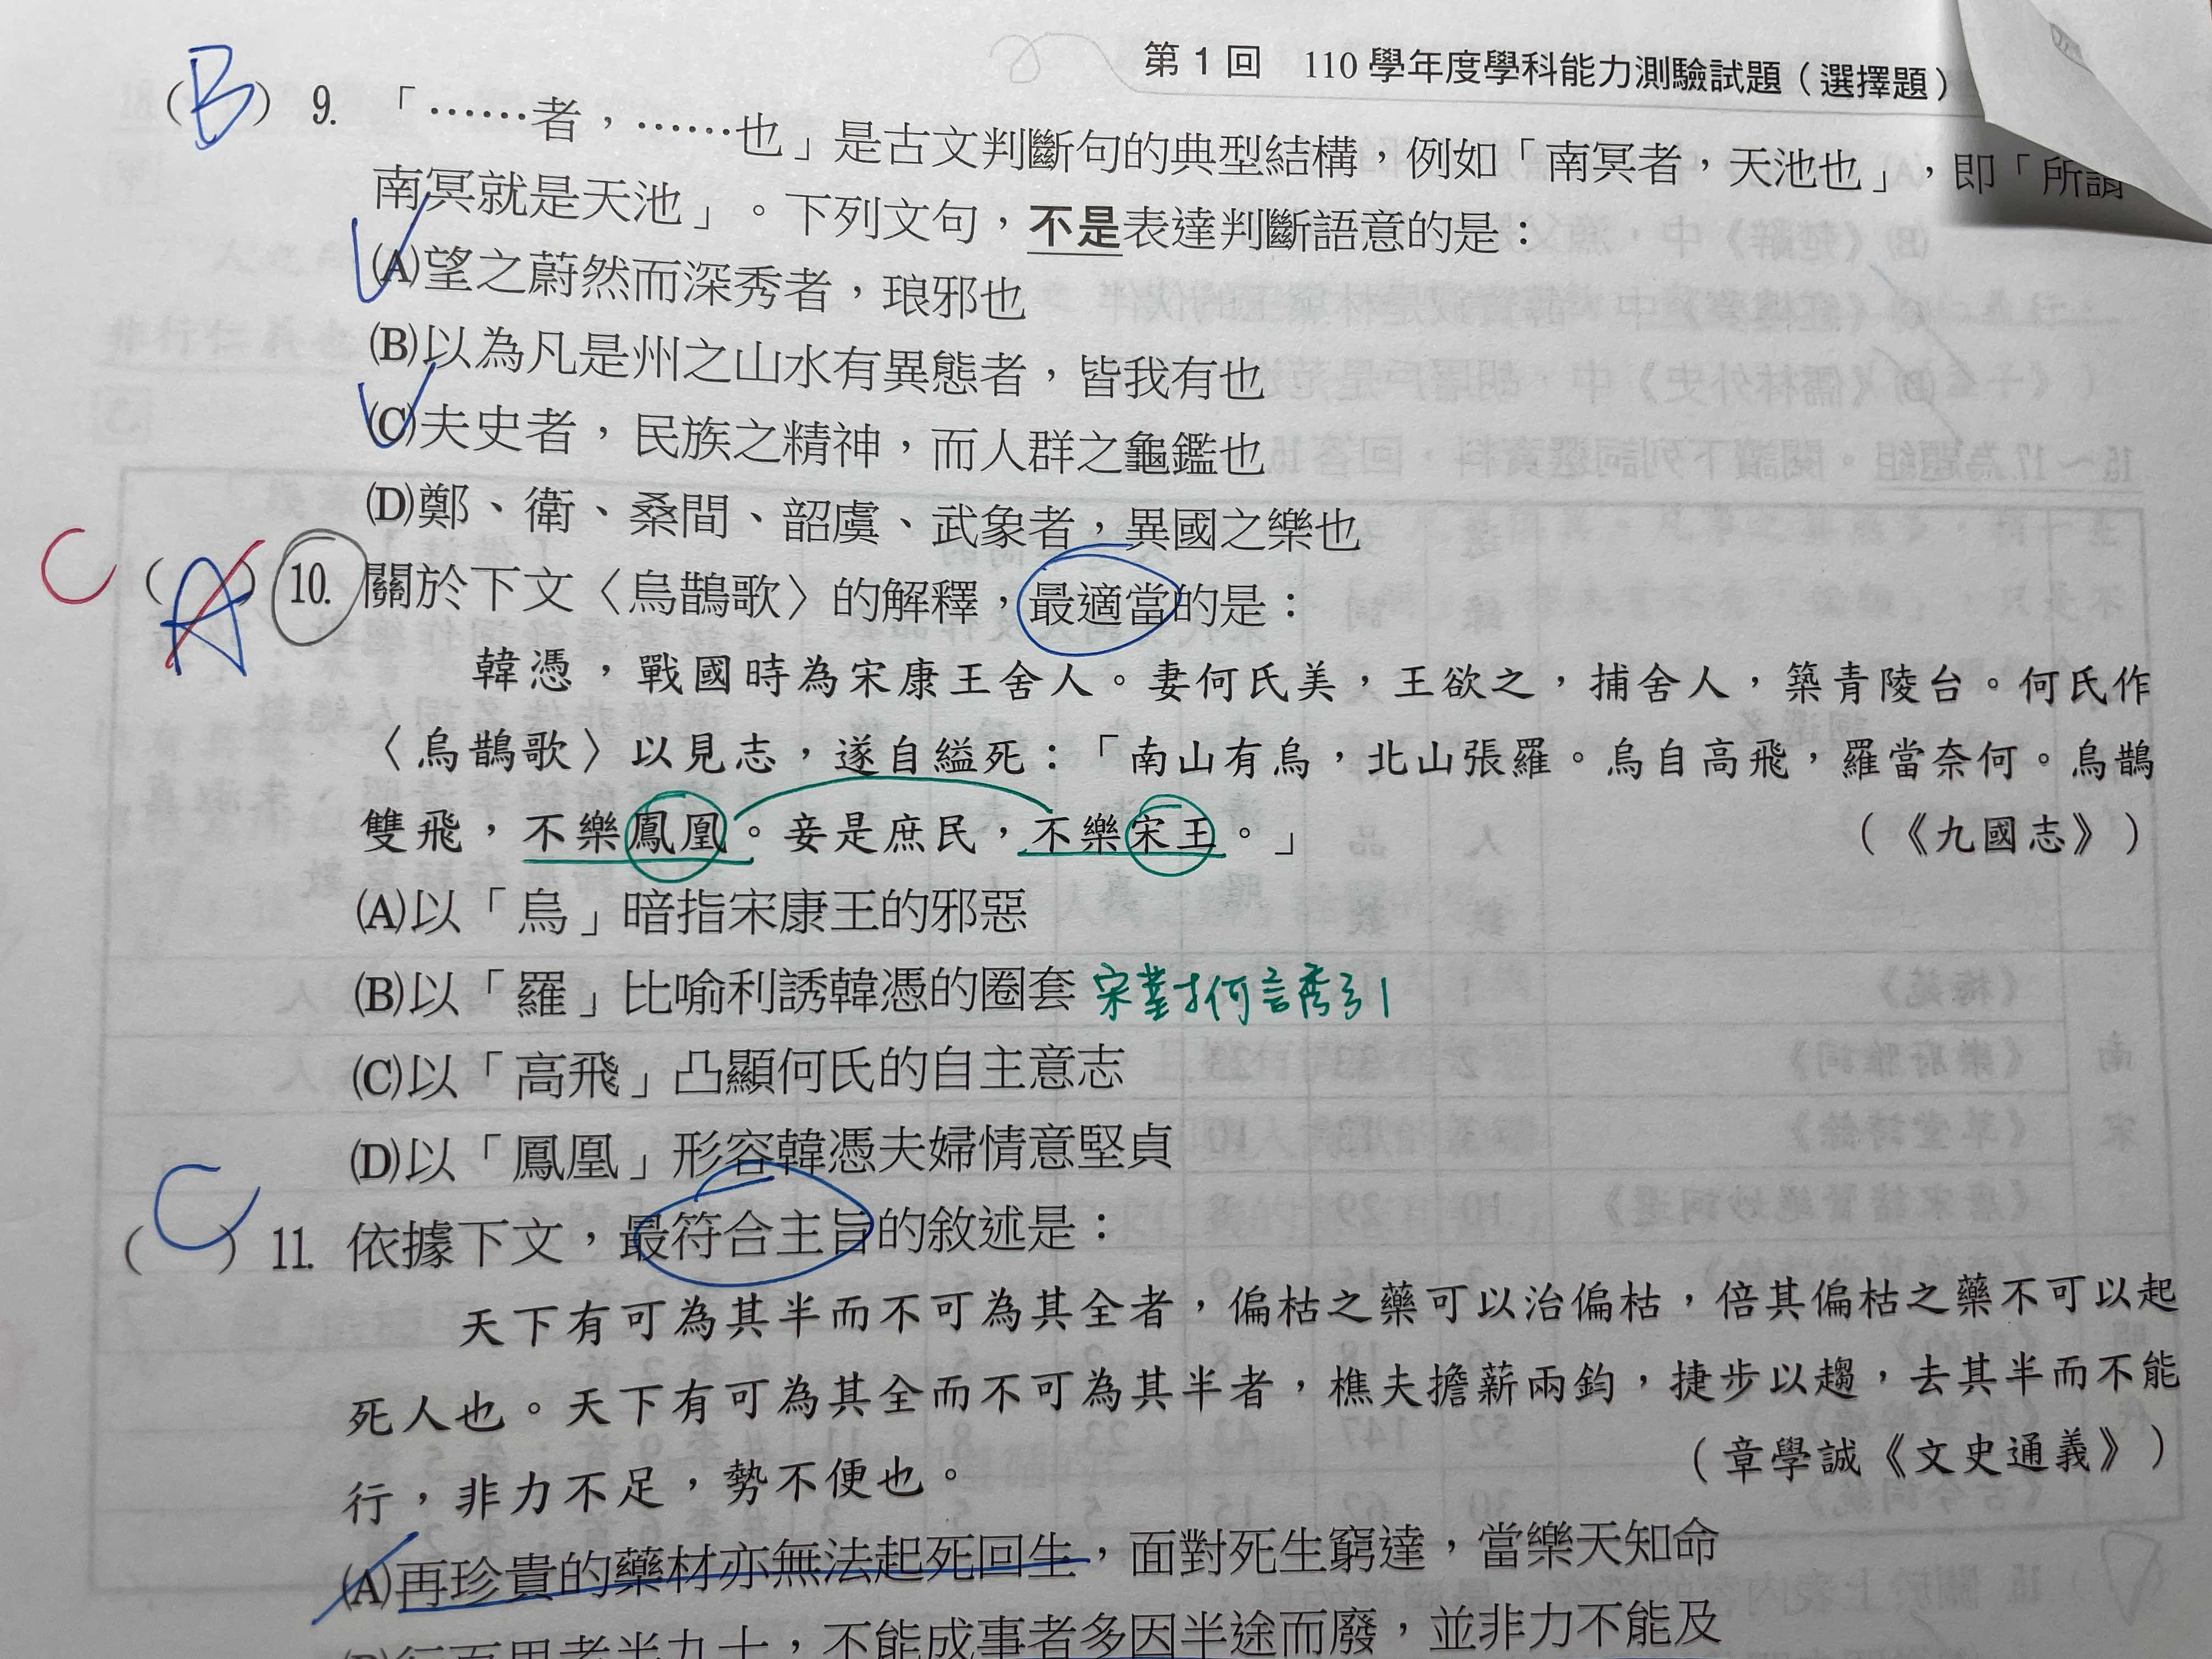 第1回 110學年度學科能力測驗試題(選擇題)
(B) 9. 「……者,……也」是古文判斷句的典型結構,例如「南冥者,天池也」,即「所謂
南冥就是天池」。下列文句,不是表達判斷語意的是:
(A)望之蔚然而深秀者,琅邪也
(B)以為凡是州之山水有異態者,皆我有也
(C)夫史者,民族之精神,而人群之龜鑑也
(D)鄭、衛、桑間、韶虞、武象者,異國之樂也
C (A) 10. 關於下文〈烏鵲歌〉的解釋,最適當的是:
韓憑,戰國時為宋康王舍人。妻何氏美,王欲之,捕舍人,築青陵台。何氏作
〈烏鵲歌〉以見志,遂自縊死:「南山有烏,北山張羅。烏自高飛,羅當奈何。烏鵲
雙飛,不樂鳳凰。妾是庶民,不樂宋王。」 (《九國志》)
(A)以「烏」暗指宋康王的邪惡
(B)以「羅」比喻利誘韓憑的圈套 宋對何誘引
(C)以「高飛」凸顯何氏的自主意志
(D)以「鳳凰」形容韓憑夫婦情意堅貞
(C) 11. 依據下文,最符合主旨的敘述是:
天下有可為其半而不可為其全者,偏枯之藥可以治偏枯,倍其偏枯之藥不可以起
死人也。天下有可為其全而不可為其半者,樵夫擔薪兩鈞,捷步以趨,去其半而不能
行,非力不足,勢不便也。 (章學誠《文史通義》)
(A)再珍貴的藥材亦無法起死回生,面對死生窮達,當樂天知命
(B)行百里者半九十,不能成事者多因半途而廢,並非力不能及